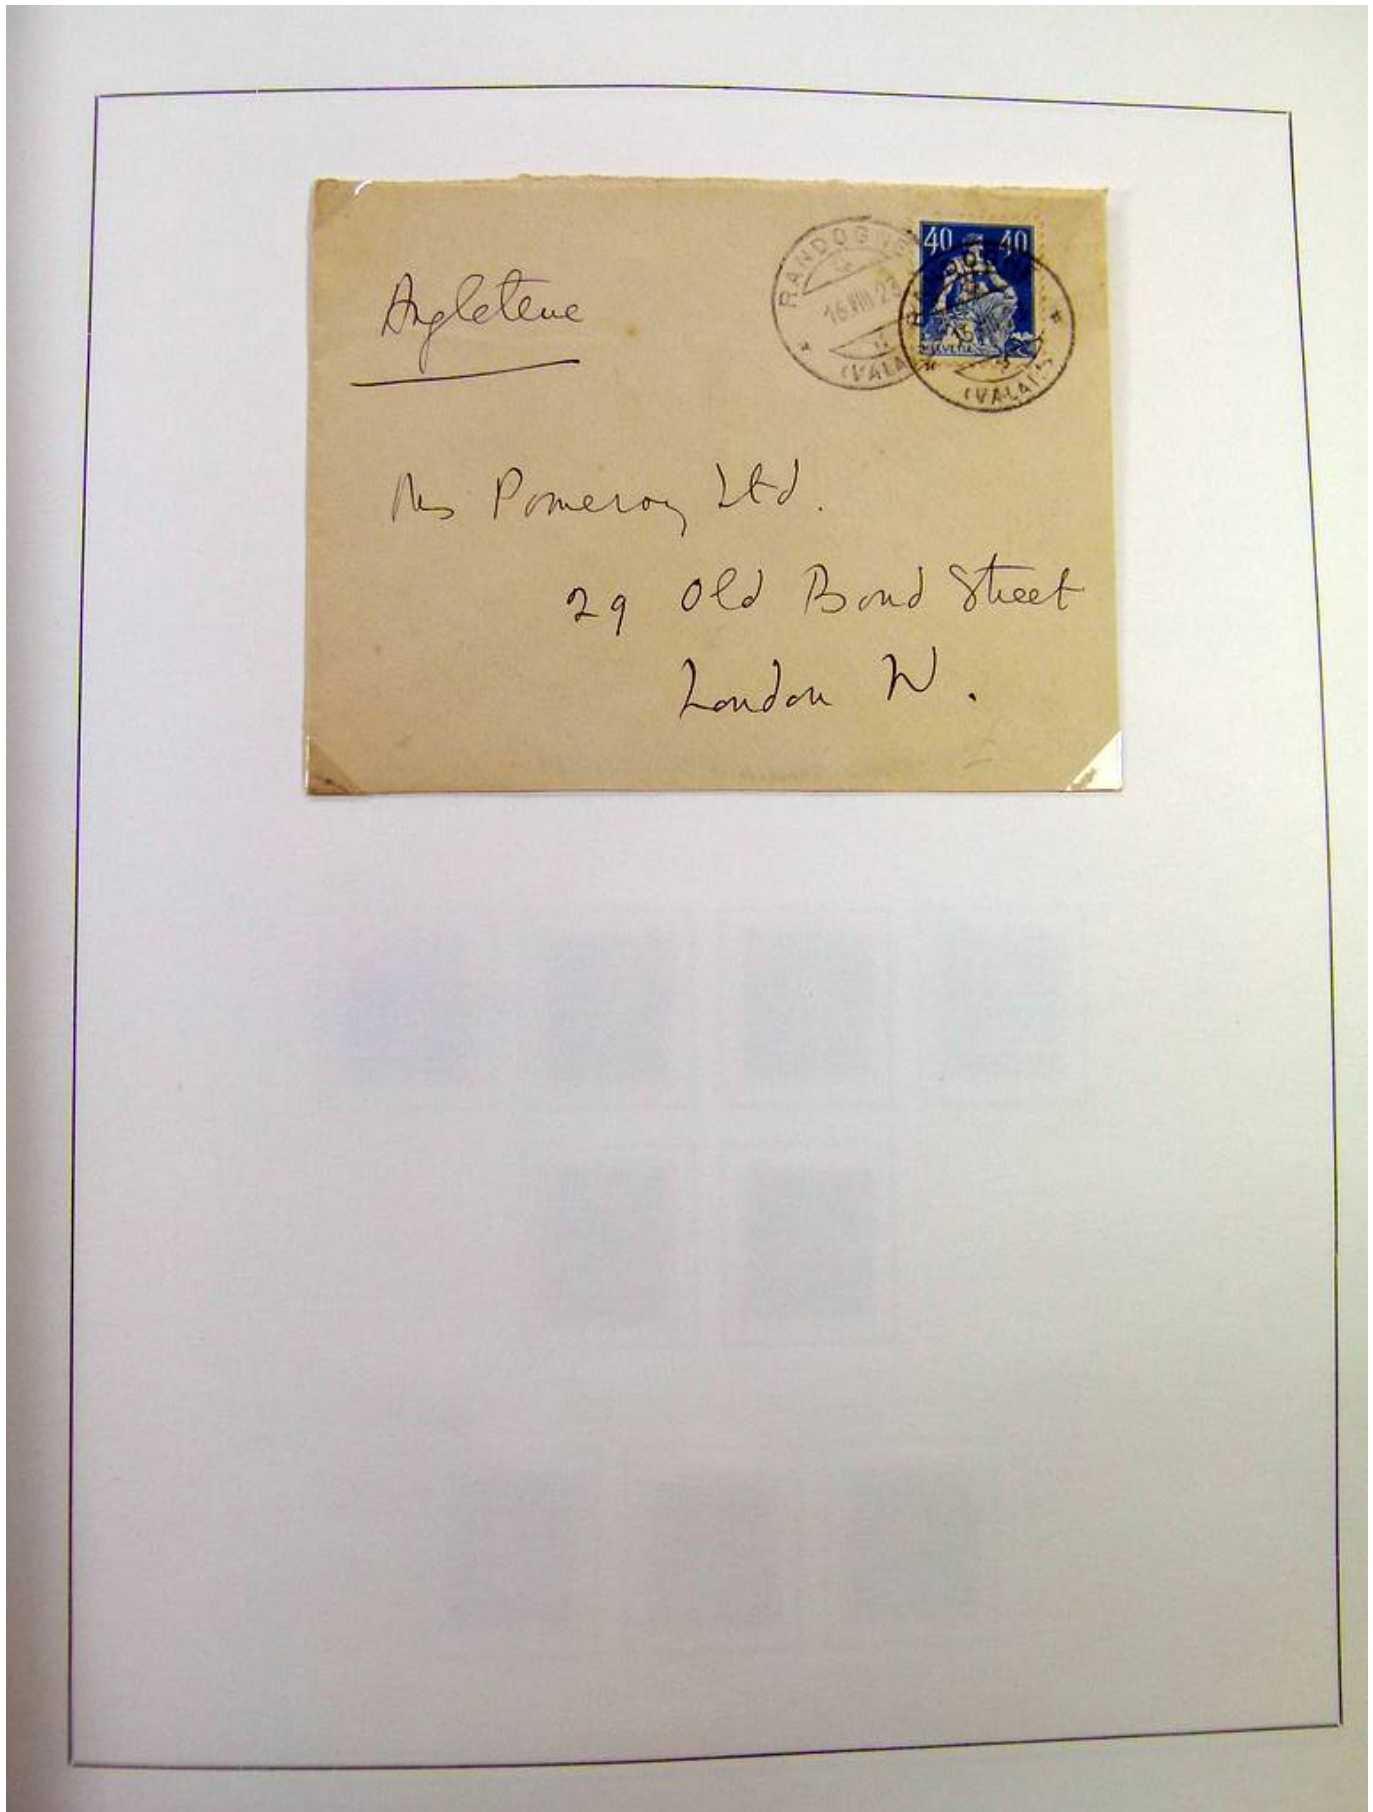 Angleterre
RANDOGNE
16.VIII.23
(VALAIS)
40 40
HELVETIA
(VALAIS)
Mrs Pomeroy Ltd.
29 Old Bond Street
London W.